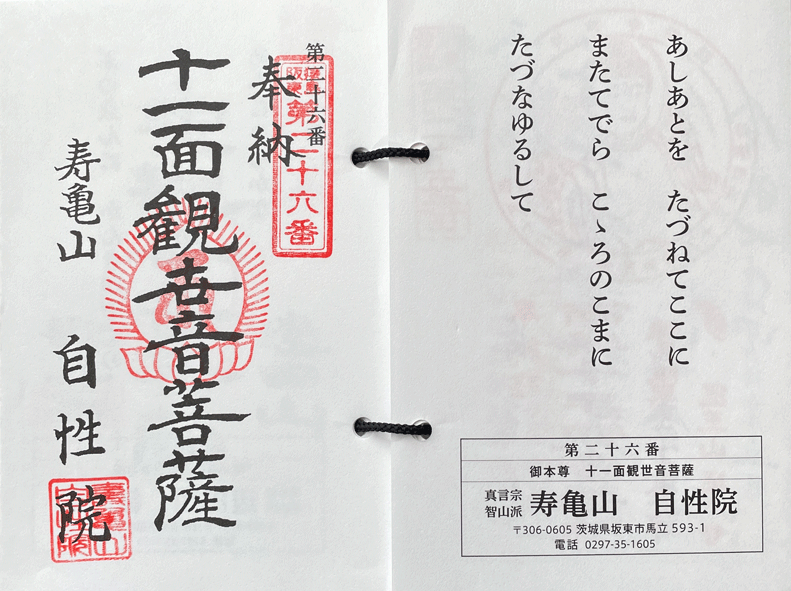 あしあとを　たづねてここに
またてでら　こゝろのこまに
たづなゆるして
第二十六番
御本尊　十一面観世音菩薩
真言宗
智山派
寿亀山　自性院
〒306-0605 茨城県坂東市馬立 593-1
電話 0297-35-1605
第二十六番
猿島
阪東
第二十六番
奉納
十一面観世音菩薩
寿亀山　自性院